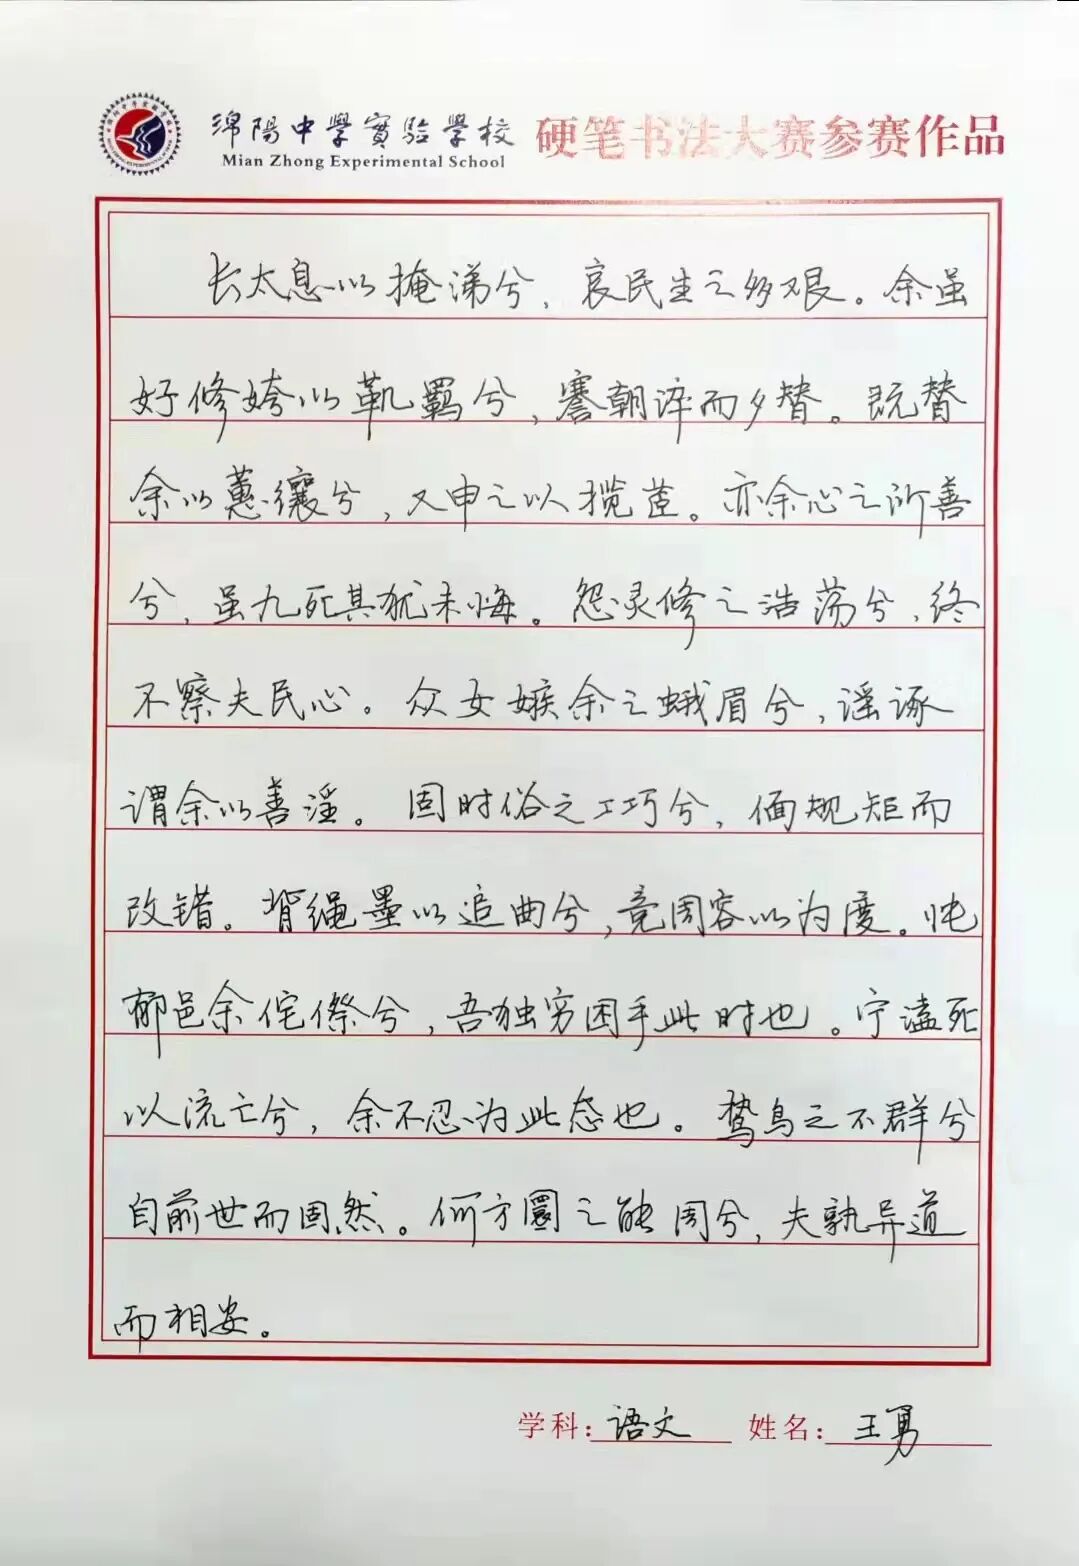 綿陽中學實驗學校
Mian Zhong Experimental School
硬笔书法大赛参赛作品
长太息以掩涕兮，哀民生之多艰。余虽
好修姱以鞿羁兮，謇朝谇而夕替。既替
余以蕙纕兮，又申之以揽茝。亦余心之所善
兮，虽九死其犹未悔。怨灵修之浩荡兮，终
不察夫民心。众女嫉余之蛾眉兮，谣诼
谓余以善淫。固时俗之工巧兮，偭规矩而
改错。背绳墨以追曲兮，竞周容以为度。忳
郁邑余侘傺兮，吾独穷困乎此时也。宁溘死
以流亡兮，余不忍为此态也。鸷鸟之不群兮
自前世而固然。何方圜之能周兮，夫孰异道
而相安。
学科：语文 姓名：王勇